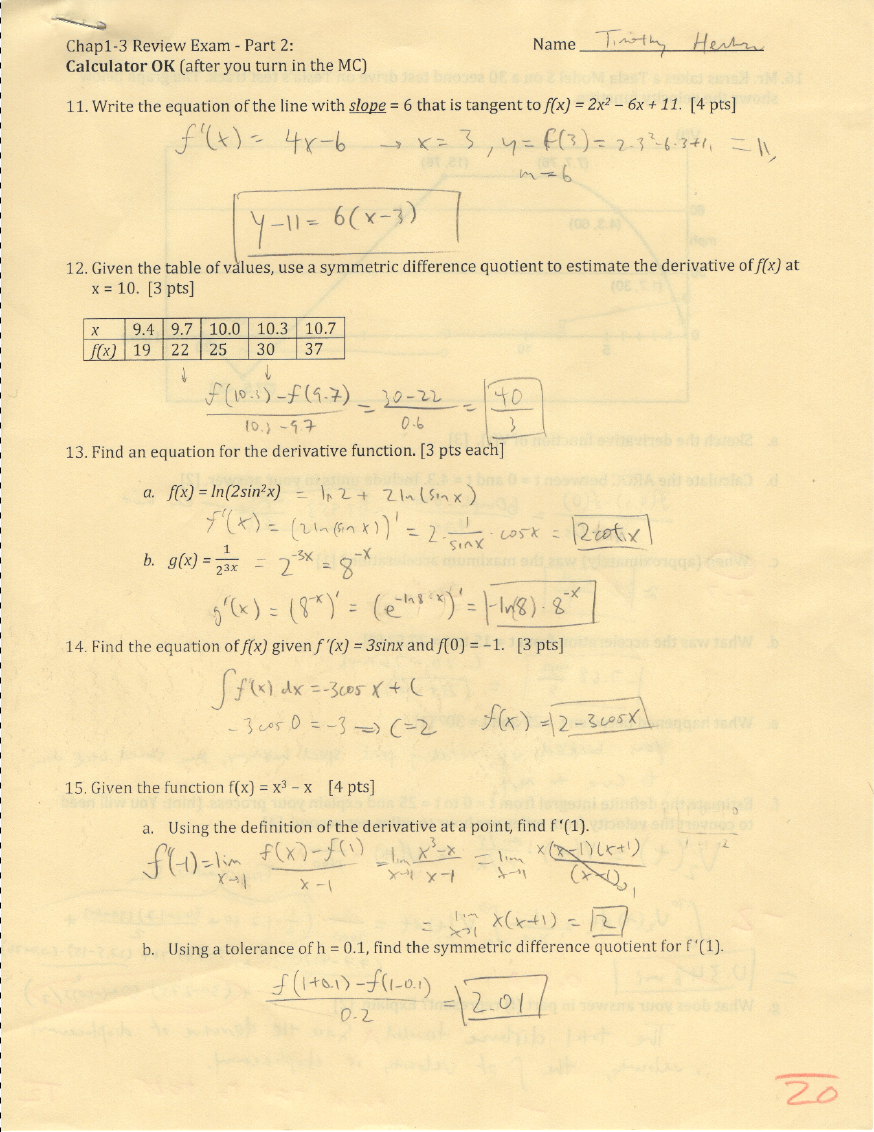 Chap1-3 Review Exam - Part 2:
Name Timothy
Calculator OK (after you turn in the MC)
11. Write the equation of the line with slope = 6 that is tangent to f(x) = 2x² – 6x + 11. [4 pts]
f'(x) = 4x-6 → x = 3, y = f(3) = 2·3²-6·3+11 = 11,
m=6
y-11 = 6(x-3)
12. Given the table of values, use a symmetric difference quotient to estimate the derivative of f(x) at
x = 10. [3 pts]
x 9.4 9.7 10.0 10.3 10.7
f(x) 19 22 25 30 37
↓ ↓
f(10.3)-f(9.7) = 30-22 = 40
10.3-9.7 0.6 3
13. Find an equation for the derivative function. [3 pts each]
a. f(x) = ln(2sin²x) = ln 2 + 2 ln (sin x)
f'(x) = (2 ln (sin x))' = 2· 1/sin x · cos x = 2 cot x
b. g(x) = 1/2³ˣ = 2^-3x = 8^-x
g'(x) = (8^-x)' = (e^-ln8·x)' = -ln(8)·8^-x
14. Find the equation of f(x) given f '(x) = 3sinx and f(0) = –1. [3 pts]
∫ f'(x) dx = -3cos x + C
-3 cos 0 = -3 ⇒ C=2 f(x) = 2-3cosx
15. Given the function f(x) = x³ – x [4 pts]
a. Using the definition of the derivative at a point, find f '(1).
f'(1) = lim x→1 f(x)-f(1) / x-1 = lim x→1 x³-x / x-1 = lim x→1 x(x-1)(x+1) / (x-1)
= lim x→1 x(x+1) = 2
b. Using a tolerance of h = 0.1, find the symmetric difference quotient for f '(1).
f(1+0.1)-f(1-0.1) = 2.01
0.2
20